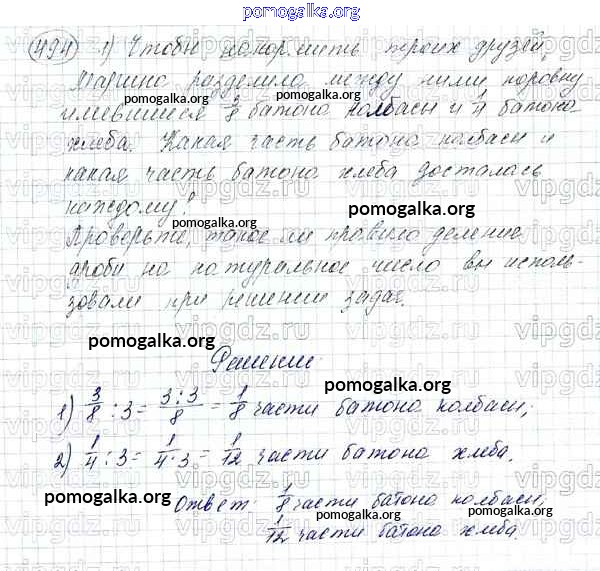 pomogalka.org
494 1) Чтобы накормить троих друзей,
Марина разделила между ними поровну
pomogalka.org pomogalka.org
имевшиеся 3/8 батона колбасы и 1/4 батона
хлеба. Какая часть батона колбасы и
какая часть батона хлеба досталась
каждому?
pomogalka.org pomogalka.org
Проверьте, такое ли правило деление
дроби на натуральное число вы исполь-
зовали при решении задач.
vipgdz.ru
pomogalka.org pomogalka.org
Решение:
1) 3/8 : 3 = 3:3/8 = 1/8 части батона колбасы;
pomogalka.org
2) 1/4 : 3 = 1/4·3 = 1/12 части батона хлеба.
pomogalka.org
Ответ: 1/8 части батона колбасы;
pomogalka.org pomogalka.org
1/12 части батона хлеба.